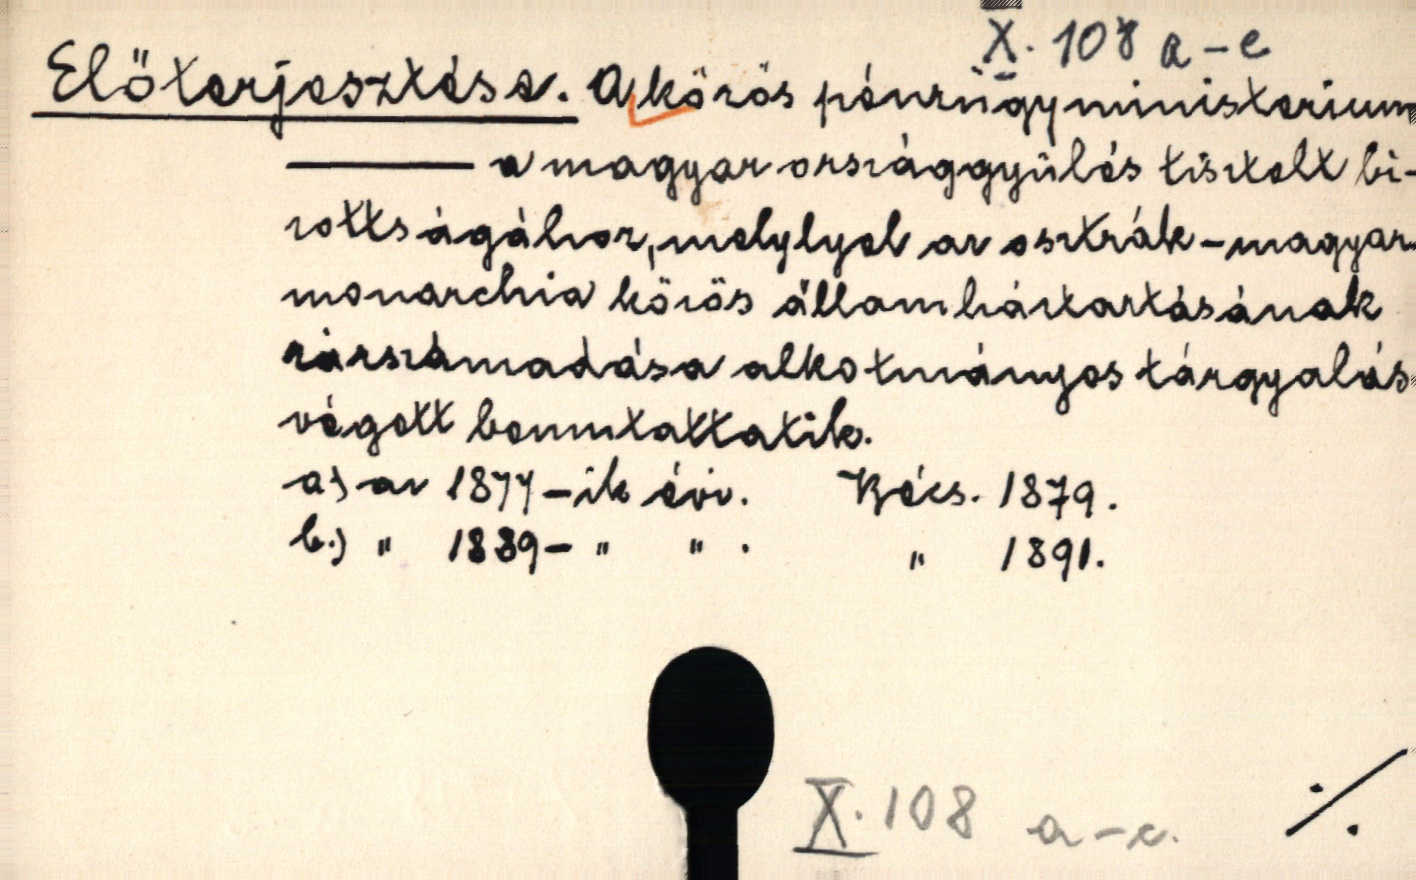 X. 108 a-c
Előterjesztése. A közös pénzügyministerium
——— a magyar országgyülés tisztelt bi-
zottságához, melylyel az osztrák-magyar
monarchia közös államháztartásának
zárszámadása alkotmányos tárgyalás
végett bemutattatik.
a) az 1877-ik évi. Bécs. 1879.
b.) " 1889- " " . " 1891.
X. 108 a-c.
./.